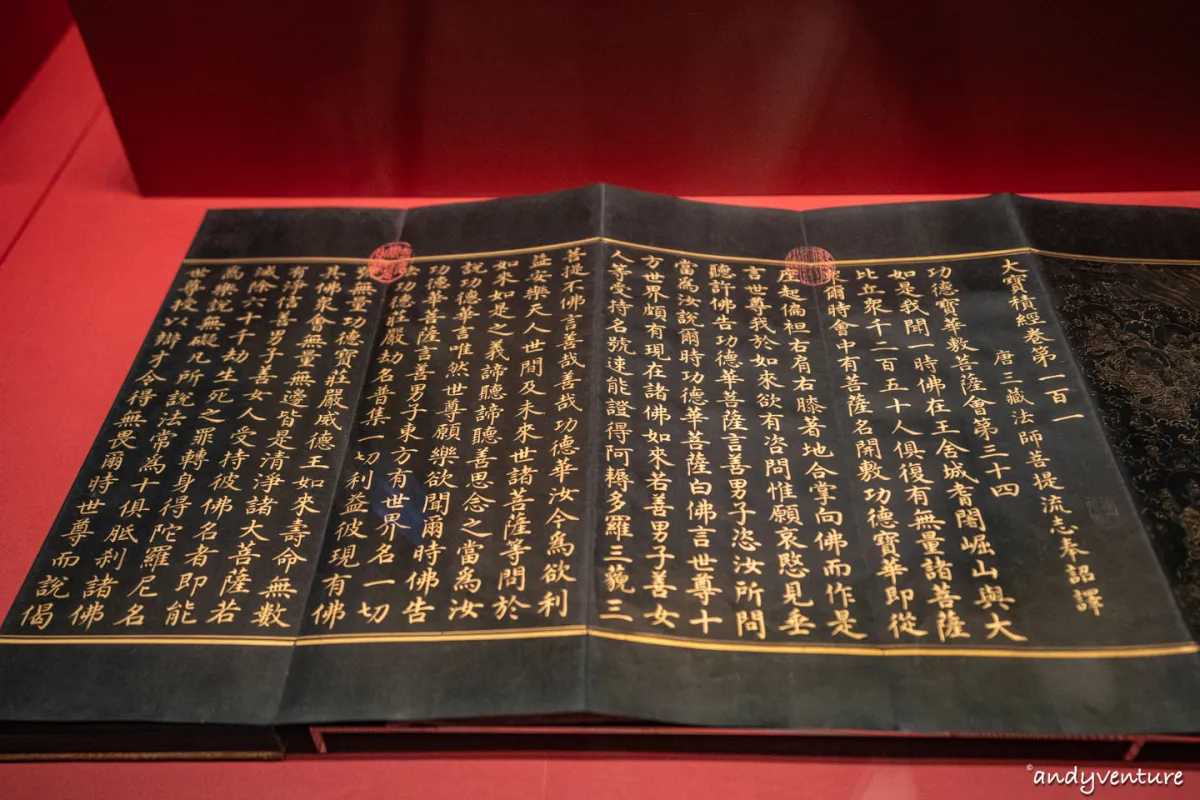 大寶積經卷第一百一
唐三藏法師菩提流志奉詔譯
功德寶華敷菩薩會第三十四
如是我聞一時佛在王舍城耆闍崛山與大
比丘衆千二百五十人俱復有無量諸菩薩
爾時會中有菩薩名開敷功德寶華即從
座起偏袒右肩右膝著地合掌向佛而作是
言世尊我於如來欲有咨問惟願哀愍見垂
聽許佛告功德華菩薩言善男子恣汝所問
當為汝說爾時功德華菩薩白佛言世尊十
方世界頗有現在諸佛如來若善男子善女
人等受持名號速能證得阿耨多羅三藐三
菩提不佛言善哉善哉功德華汝今為欲利
益安樂天人世間及未來世諸菩薩等問於
如來如是之義諦聽諦聽善思念之當為汝
說功德華言唯然世尊願樂欲聞爾時佛告
功德華菩薩言善男子東方有世界名一切
功德莊嚴劫名普集一切利益彼現有佛
無量功德寶莊嚴威德王如來壽命無數
其佛衆會無量無邊皆是清淨諸大菩薩若
有淨信善男子善女人受持彼佛名者即能
滅除六十千劫生死之罪轉身得陀羅尼名
為樂說無礙凡所說法常為十俱胝利諸佛
世尊授以辯才令得無畏爾時世尊而說偈
©andyventure